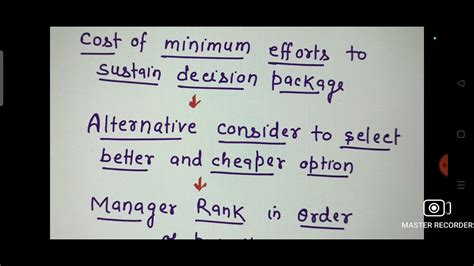 Cost of minimum efforts to
sustain decision package
Alternative consider to select
better and cheaper option
Manager Rank in order
MASTER RECORDER